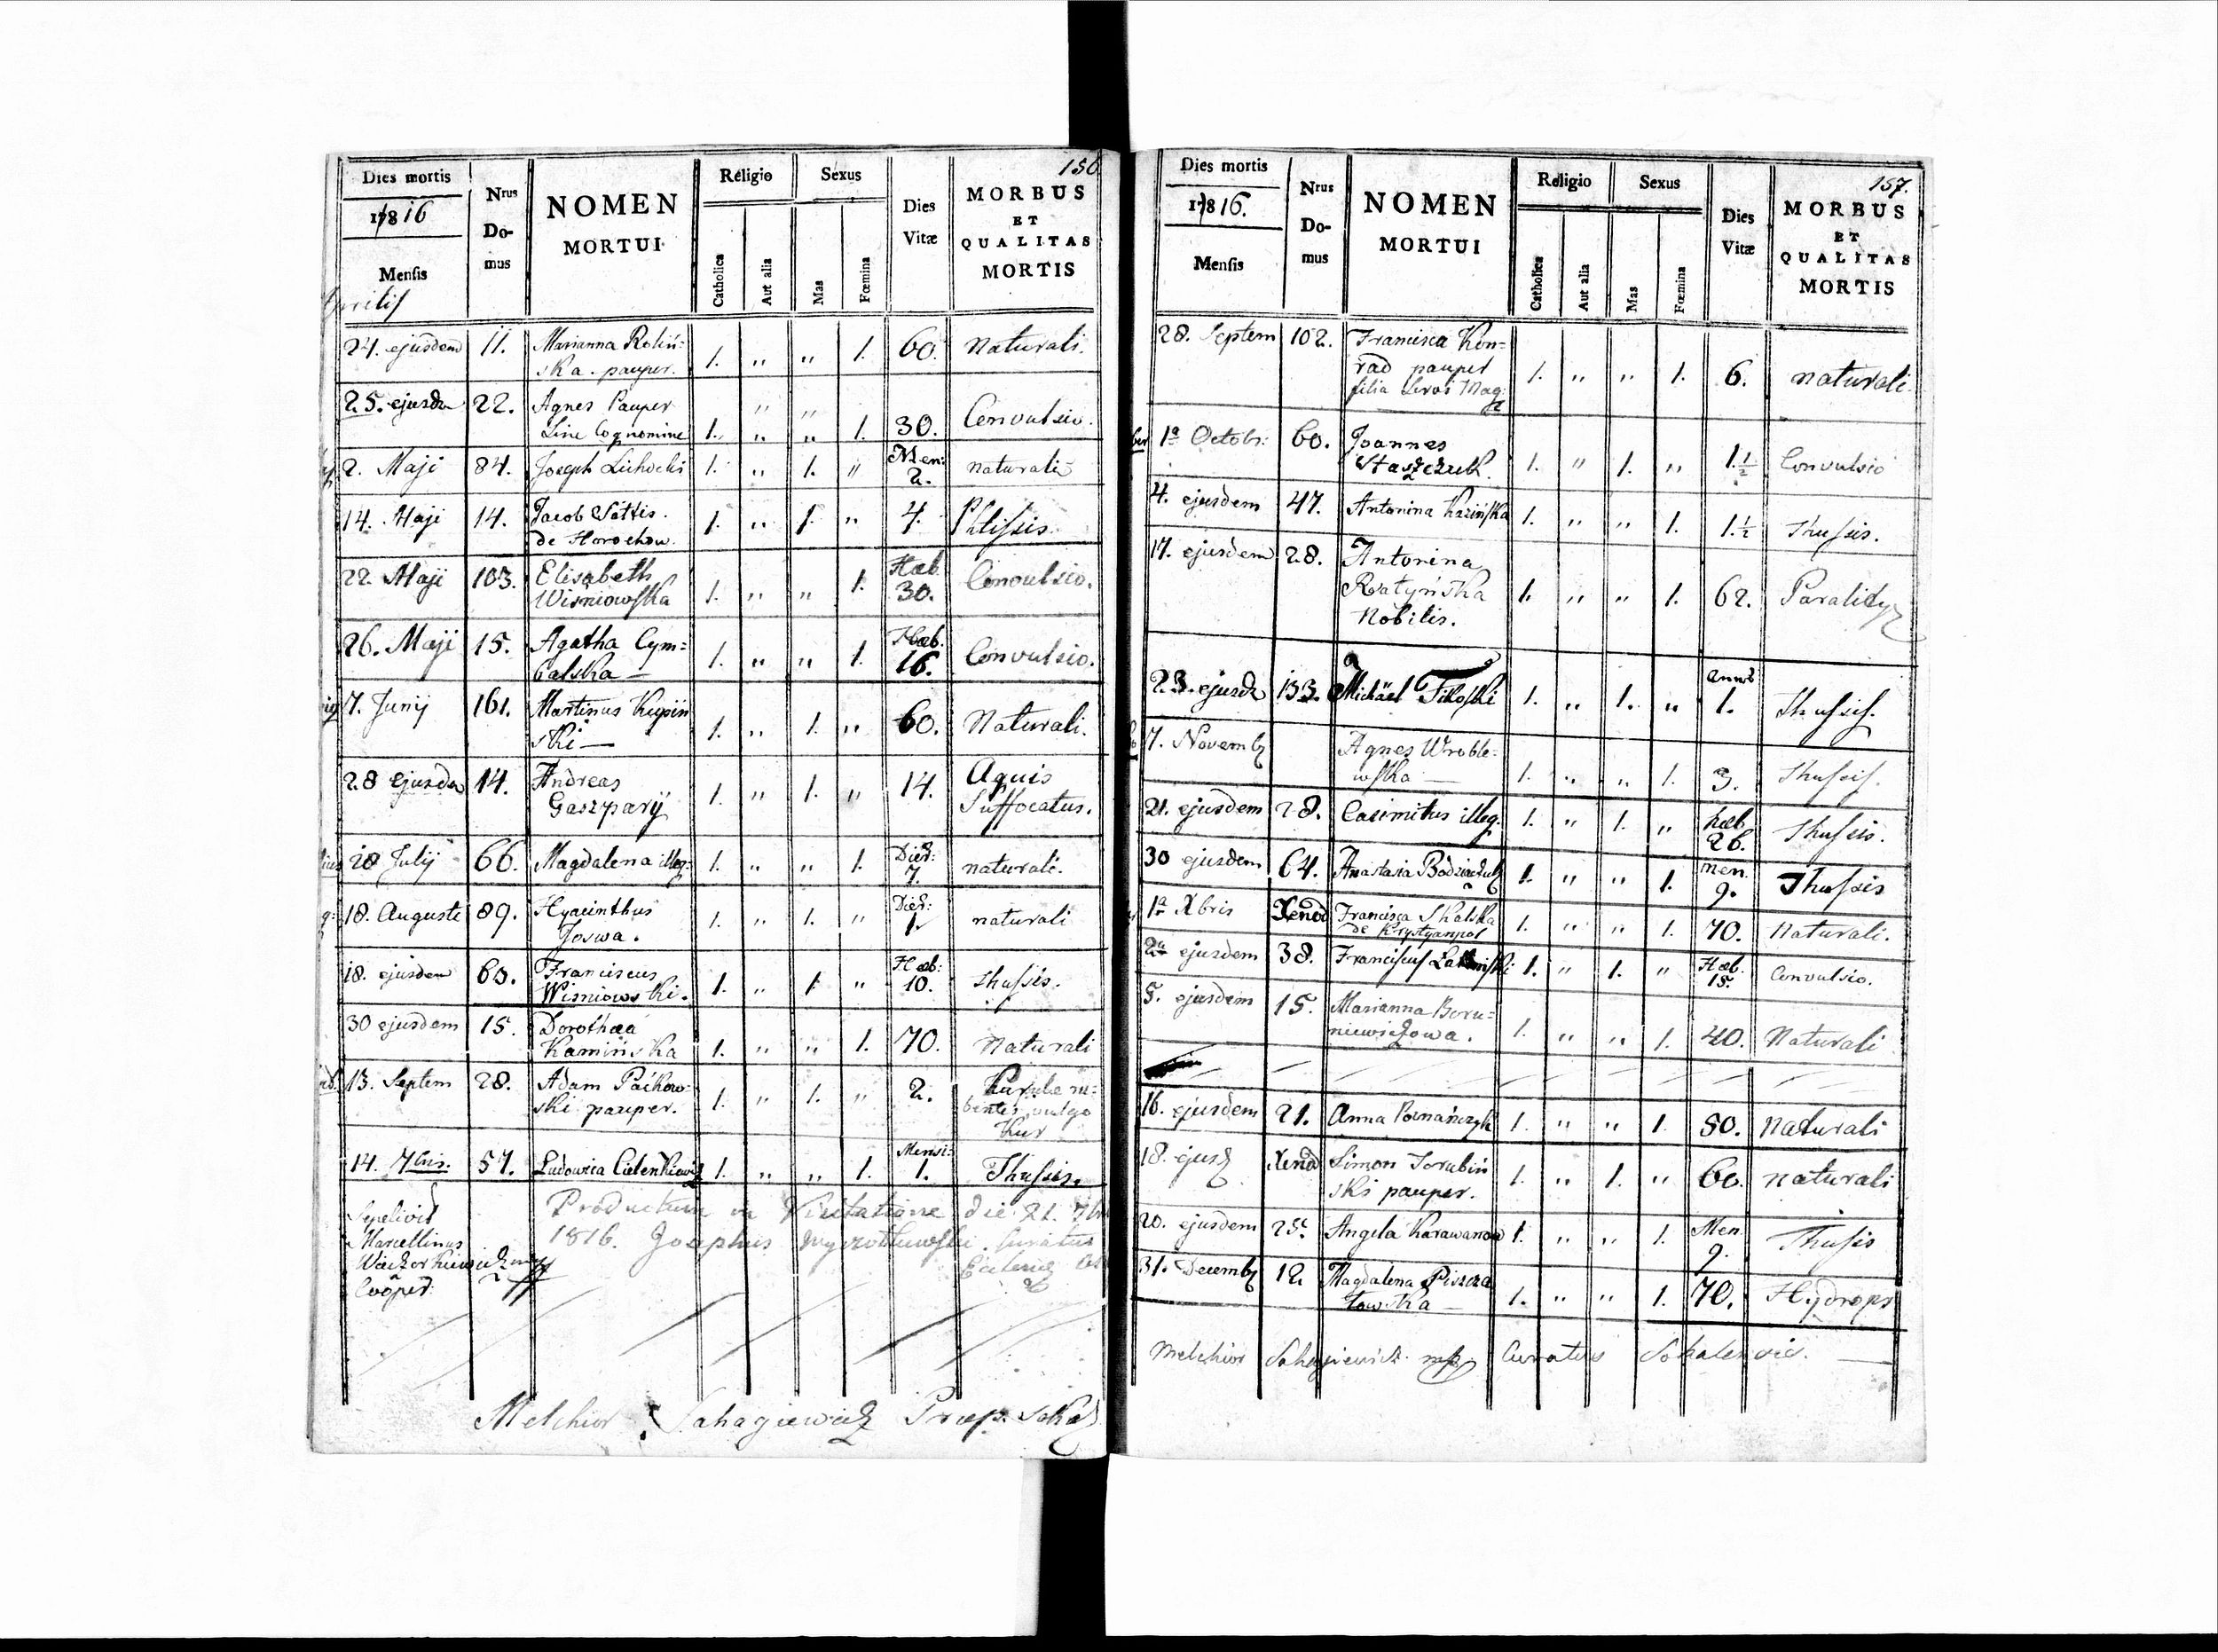 156
Dies mortis
1816
Mensis
Aprilis
Nrus
Do-
mus
NOMEN
MORTUI
Religio
Catholica
Aut alia
Sexus
Mas
Fœmina
Dies
Vitæ
MORBUS
ET
QUALITAS
MORTIS
24. ejusdem 11. Marianna Roliń=
ska. pauper. 1. " " 1. 60. Naturali.
25. ejusdem 22. Agnes Pauper
Sine Cognomine 1. " " 1. 30. Convulsio.
2. Maji 84. Joseph Lichocki 1. " 1. " Men: 2. naturali
14. Maji 14. Jacob
de Horochow. 1. " 1. " 4. Phtissis.
22. Maji 103. Elisabeth
Wisniowska 1. " " 1. Heb. 30. Convulsio.
26. Maji 15. Agatha Cym=
balska — 1. " " 1. Heb. 16. Convulsio.
7. Junij 161. Martinus Kupiń
ski — 1. " 1. " 60. Naturali.
28 ejusdem 14. Andreas
Gaszpary 1. " 1. " 14. Aquis
Suffocatus.
28 Julij 66. Magdalena illeg: 1. " " 1. Dier: 7. naturali.
18. Auguste 89. Hyacinthus
Joswa. 1. " 1. " Dier: 1. naturali
18. ejusdem 60. Franciscus
Wisniowski. 1. " 1. " Heb: 10. Thussis.
30 ejusdem 15. Dorothea
Kamińska 1. " " 1. 70. Naturali
13. Septem 28. Adam Paćkow-
ski pauper. 1. " 1. " 2.
vulgo
Kur
14. 7bris. 57. Ludovica 1. " " 1. Mensi: 1. Thussis.
Sepelivit
Marcellinus
Cooper:
Productum in Visitatione die 21. 7br
1816. Josephus Curatus
Melchior Sahagiewicz Præp. Sokal
157.
Dies mortis
1816.
Mensis
Nrus
Do-
mus
NOMEN
MORTUI
Religio
Catholica
Aut alia
Sexus
Mas
Fœmina
Dies
Vitæ
MORBUS
ET
QUALITAS
MORTIS
28. Septem 102. Francisca Kon=
rad pauper
filia 1. " " 1. 6. naturali.
1a Octobr: 60. Joannes
Staszczuk. 1. " 1. " 1 1/2 Convulsio
4. ejusdem 47. Antonina Kazińska 1. " " 1. 1 1/2 Thussis.
17. ejusdem 28. Antonina
Ratyńska
Nobilis. 1. " " 1. 62.
23. ejusd 133. Michäel Fikoski 1. " 1. " anno 1. Thussis.
7. Novemb Agnes Wroble-
wska — 1. " " 1. 3. Thussis.
21. ejusdem 28. Casimirus illeg. 1. " 1. " heb. 26. Thussis.
30 ejusdem 64. Anastasia 1. " " 1. men. 9. Thussis
1a Xbris Xenod Francisca Skalska
de Krystyanpol 1. " " 1. 70. Naturali.
2a ejusdem 38. Franciscus 1. " 1. " Heb. 15. Convulsio.
5. ejusdem 15. Marianna Boru=
niewiczowa. 1. " " 1. 40. Naturali
16. ejusdem 21. Anna Poznańczyk 1. " " 1. 50. Naturali
18. ejusd Xenod Simon
ski pauper. 1. " 1. " 60. naturali
20. ejusdem 25. Angela Karawanowa 1. " " 1. Men. 9. Thussis
31. Decemb 12. Magdalena Piszcza
towska — 1. " " 1. 70. Hydrops
Melchior Sahagiewicz mp Curatus Sokalensis.